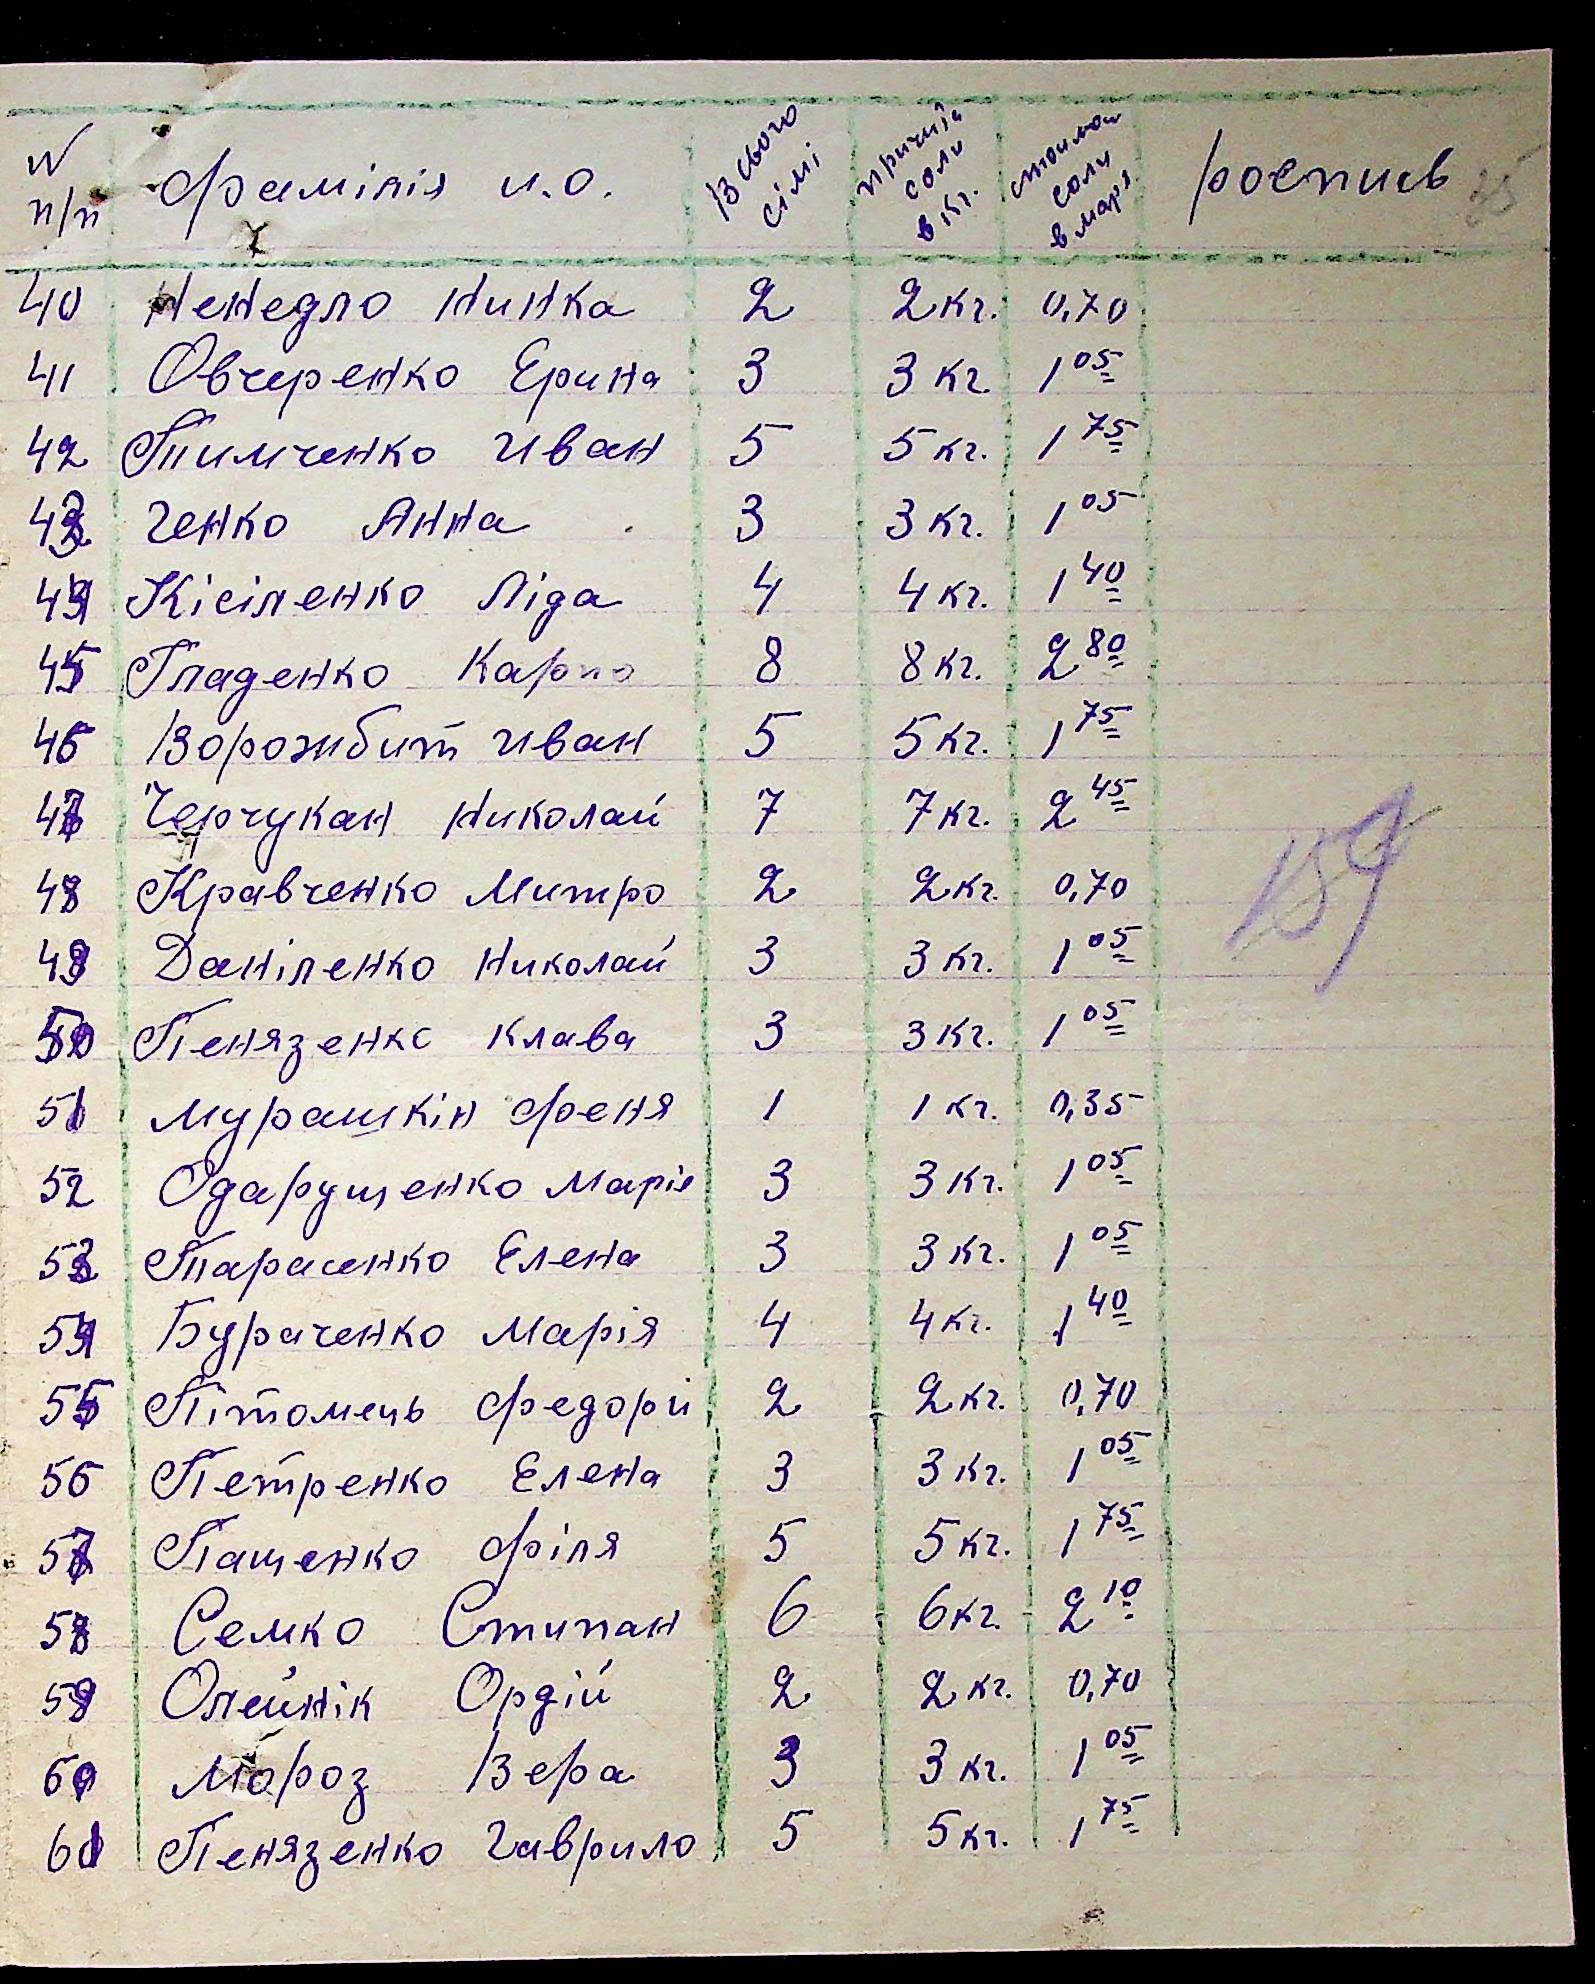 № п/п Фамілія и.о. Всього сімї причит. соли в кг. стоимон соли в марк. роспись 35
40 Ненедло Нинка 2 2 кг. 0,70
41 Овчеренко Ерина 3 3 кг. 1 05
42 Тимченко Иван 5 5 кг. 1 75
43 Генко Анна 3 3 кг. 1 05
44 Кісіленко Ліда 4 4 кг. 1 40
45 Гладенко Карпо 8 8 кг. 2 80
46 Ворожбит Иван 5 5 кг. 1 75
47 Черчукан Николай 7 7 кг. 2 45
48 Кравченко Митро 2 2 кг. 0,70
49 Даніленко Николай 3 3 кг. 1 05
50 Пенязенко Клава 3 3 кг. 1 05
51 Мурашкін Феня 1 1 кг. 0,35
52 Одарущенко Марія 3 3 кг. 1 05
53 Тарасенко Елена 3 3 кг. 1 05
54 Бураченко Марія 4 4 кг. 1 40
55 Пітомець Федори 2 2 кг. 0,70
56 Петренко Елена 3 3 кг. 1 05
57 Пащенко Філя 5 5 кг. 1 75
58 Семко Стипан 6 6 кг. 2 10
59 Олейнік Ордій 2 2 кг. 0,70
60 Мороз Вера 3 3 кг. 1 05
61 Пенязенко Гаврило 5 5 кг. 1 75
159